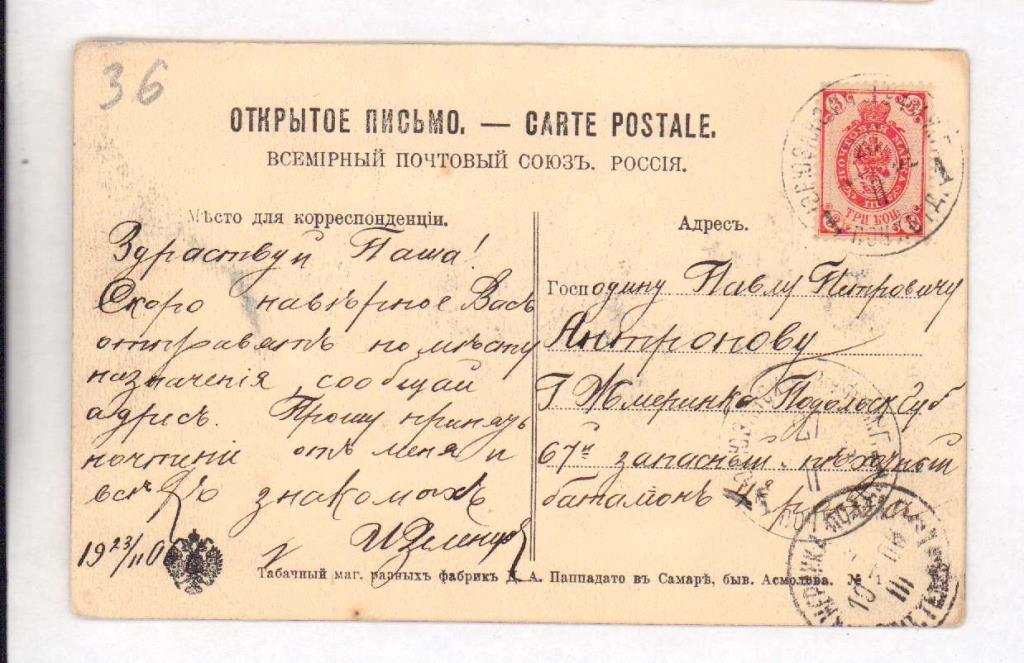 36
ОТКРЫТОЕ ПИСЬМО. — CARTE POSTALE.
ВСЕМІРНЫЙ ПОЧТОВЫЙ СОЮЗЪ. РОССІЯ.
Мѣсто для корреспонденціи.
Здраствуй Паша!
Скоро навѣрное Васъ
отправятъ по мѣсту
назначенія сообщай
адресъ. Прошу принять
почтеніе отъ меня и
всѣхъ знакомыхъ
19 23/II 0
Адресъ.
Господину Павлу Питровичу
Антропову
Г Жмеринка Подольск Губ
67й запасный
баталіонъ 4я рота
ПОЧТОВАЯ МАРКА
ТРИ КОП.
3 3
Табачный маг. разныхъ фабрикъ Д. А. Паппадато въ Самарѣ, быв. Асмолова. №